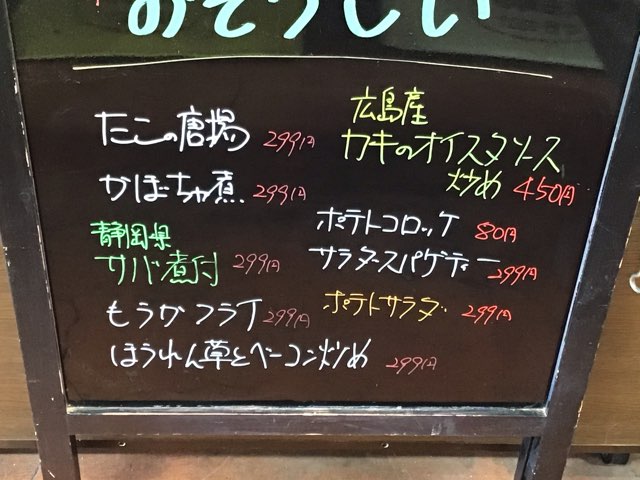 おそうしい
たこの唐揚 299円
かぼちゃ煮 299円
静岡県
サバ煮付 299円
もうかフライ 299円
ほうれん草とベーコン炒め 299円
広島産
カキのオイスタソース
炒め 450円
ポテトコロッケ 80円
サラダスパゲティー 299円
ポテトサラダ 299円